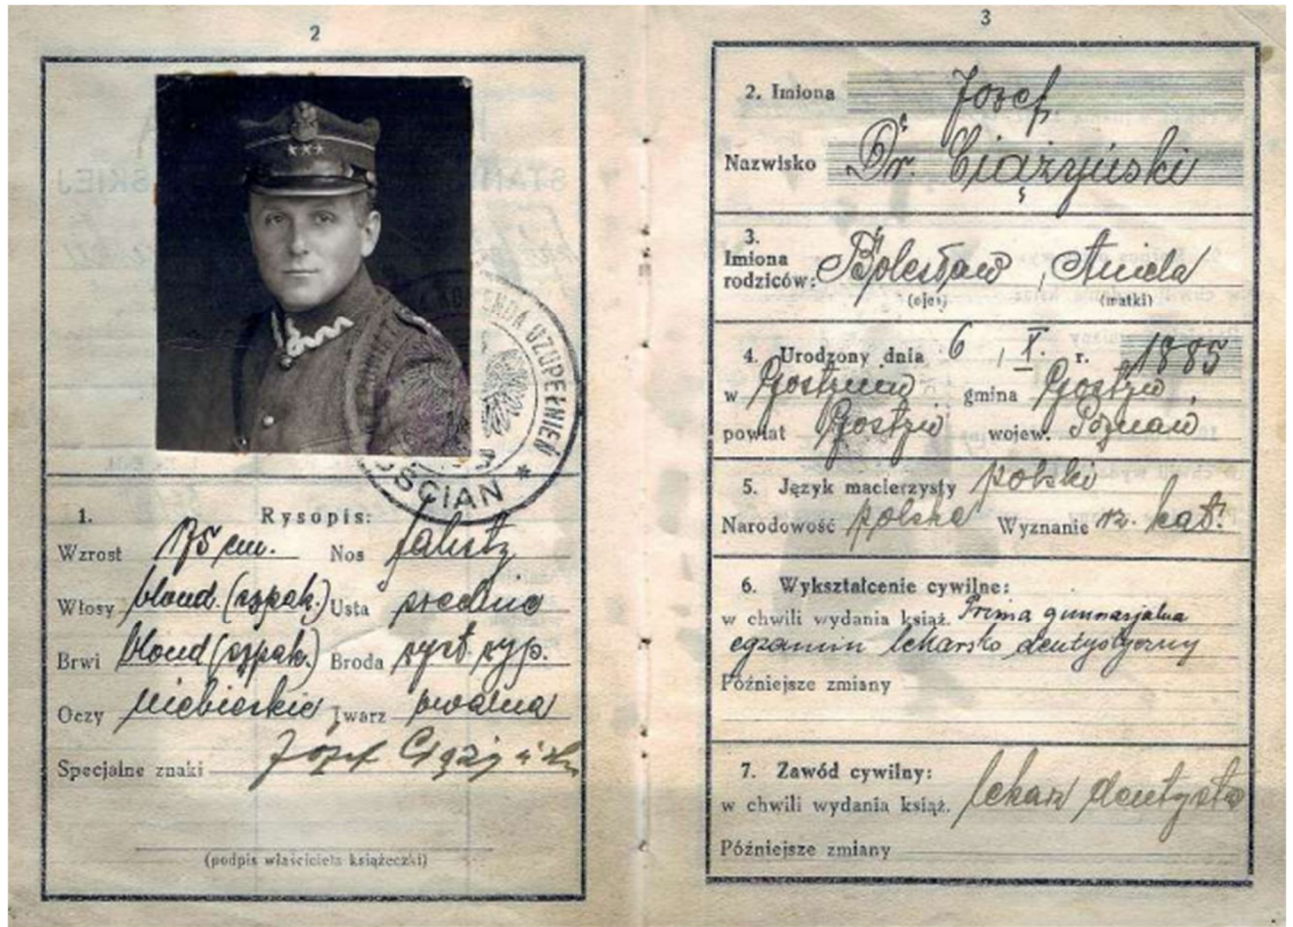 2
KOMENDA UZUPEŁNIEŃ
ŚCIAN *
1. Rysopis:
Wzrost 175 cm. Nos falisty
Włosy blond. (szpak.) Usta średnie
Brwi blond (szpak.) Broda
Oczy niebieskie Twarz owalna
Specjalne znaki
Józef Ciążyński
(podpis właściciela książeczki)
3
2. Imiona Józef
Nazwisko Dr. Ciążyński
3.
Imiona
rodziców: Bolesław, Aniela
(ojca) (matki)
4. Urodzony dnia 6, X. r. 1885
w Gostyniu gmina Gostyń,
powiat Gostyń wojew. Poznań
5. Język macierzysty polski
Narodowość polska Wyznanie rz. kat.
6. Wykształcenie cywilne:
w chwili wydania książ. Prima gimnazjalna
egzamin lekarsko dentystyczny
Późniejsze zmiany
7. Zawód cywilny:
w chwili wydania książ. lekarz dentysta
Późniejsze zmiany